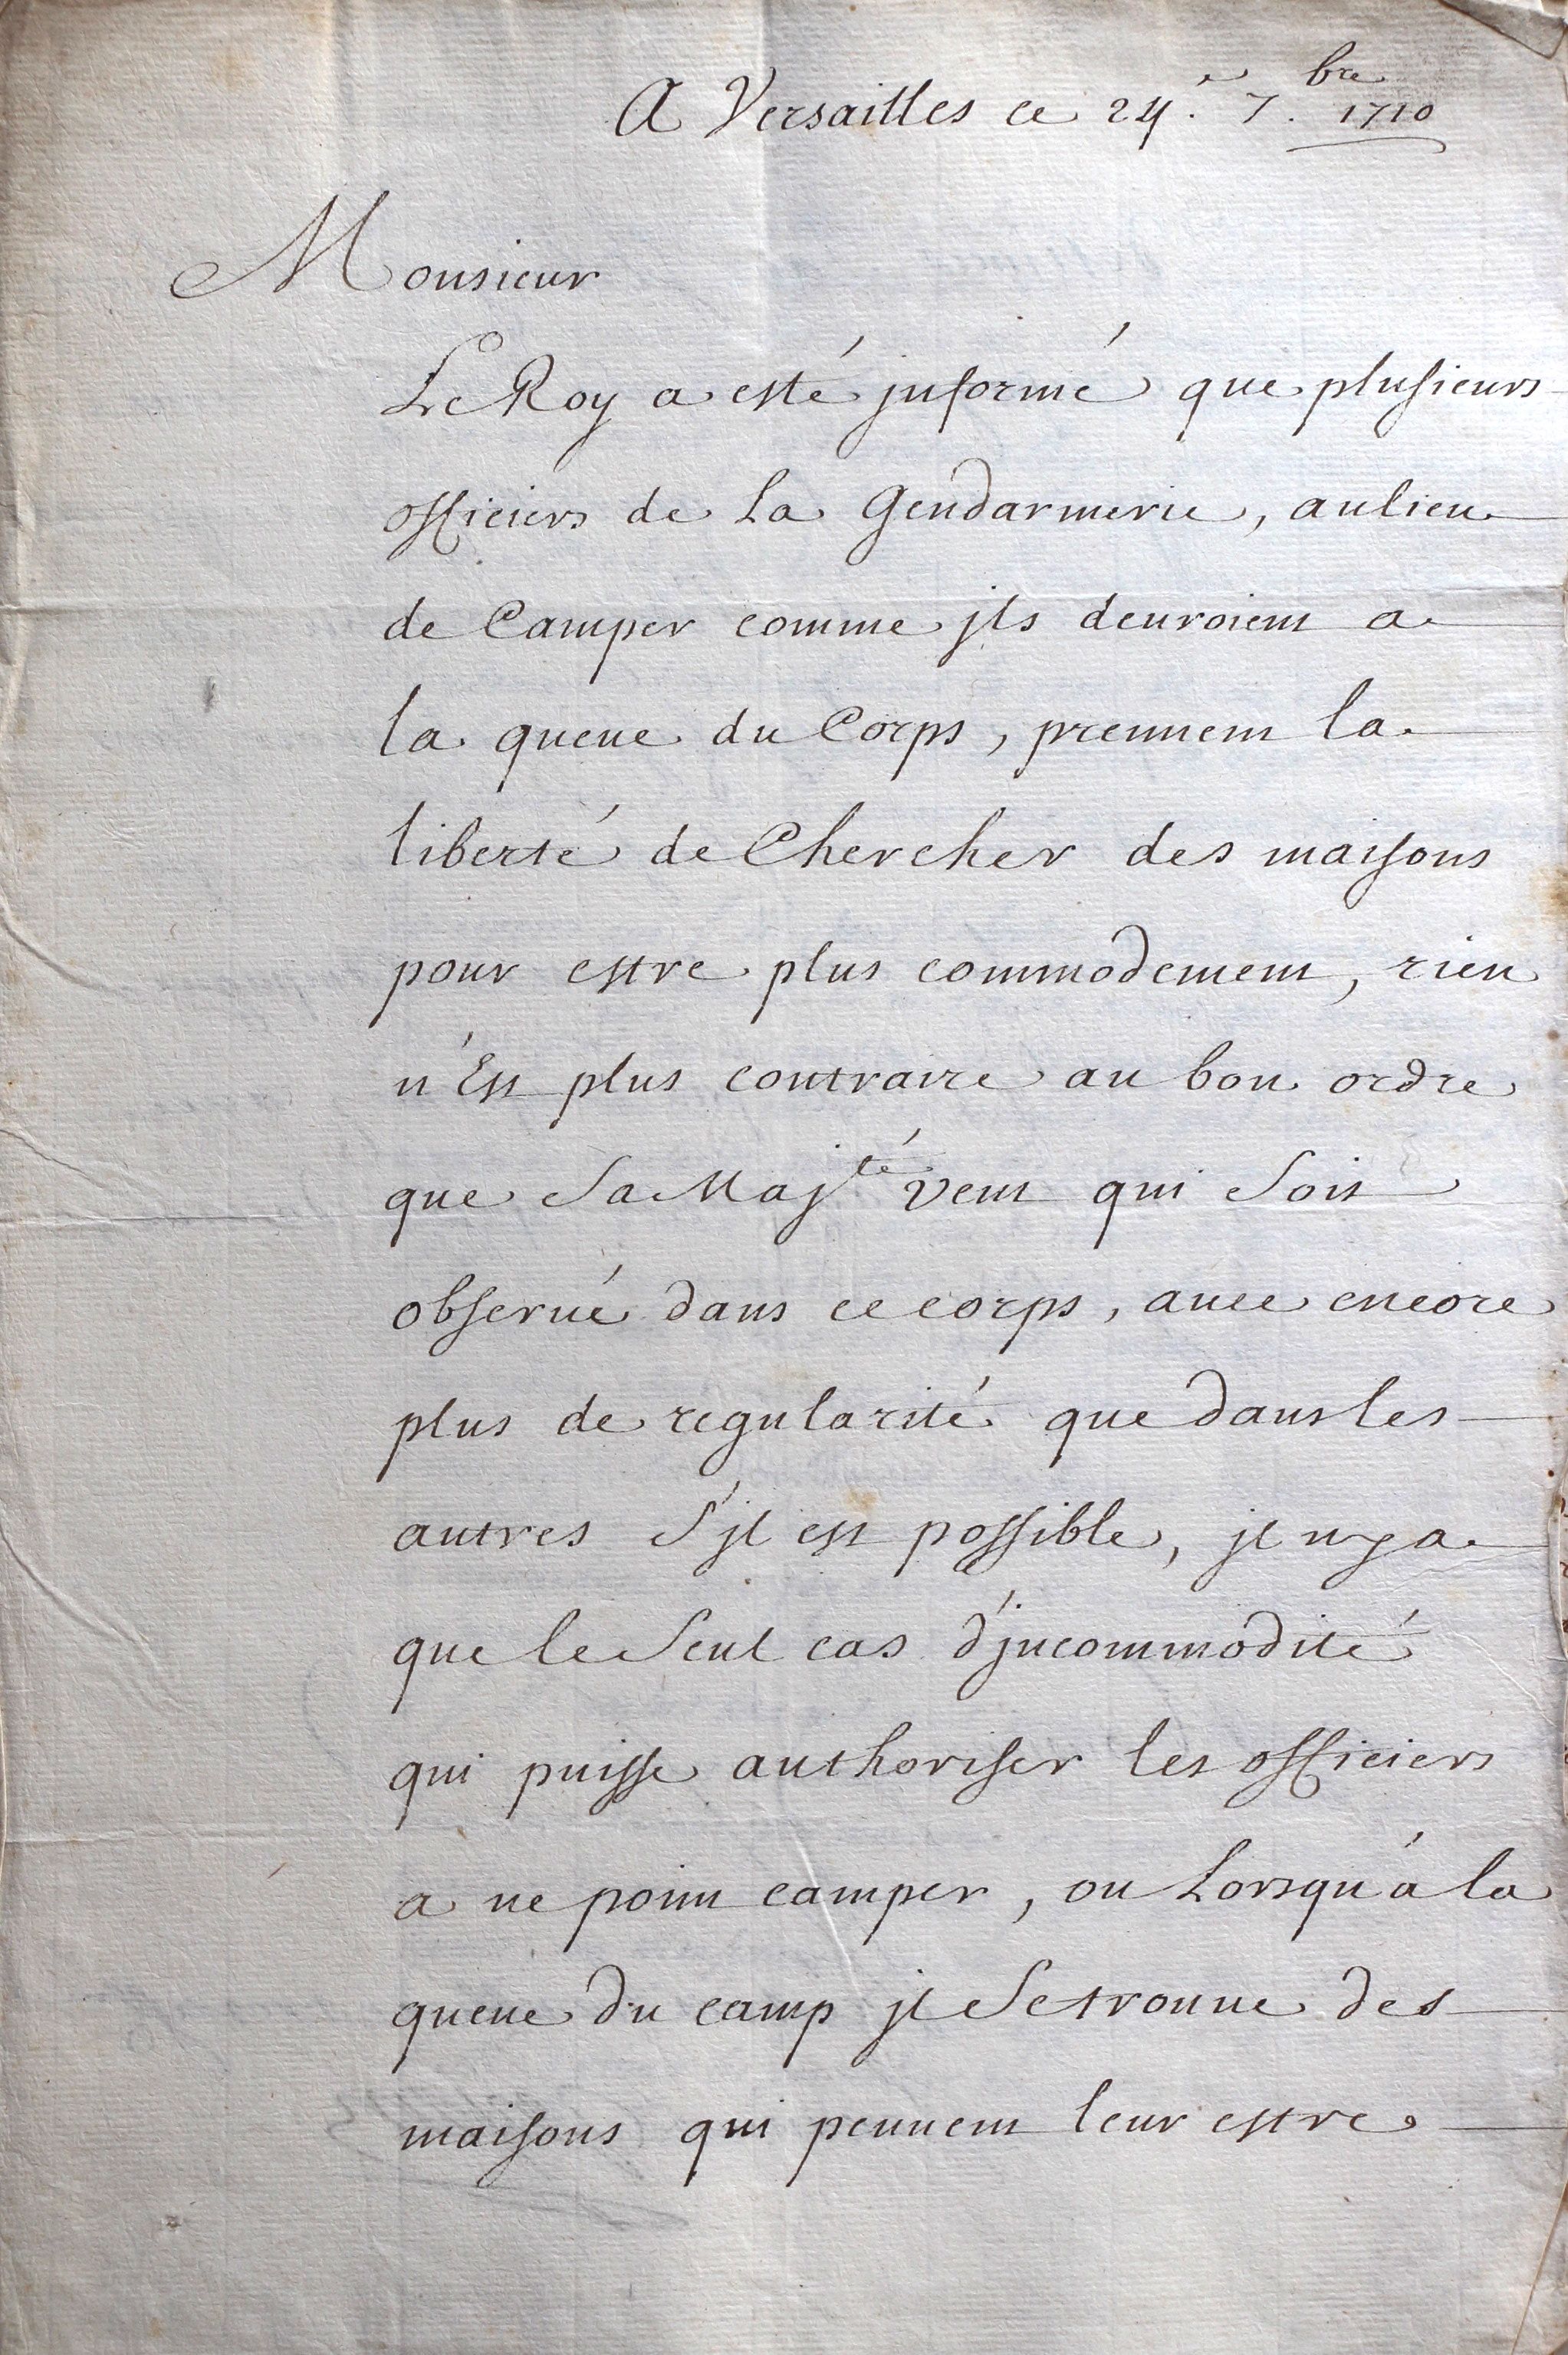 A Versailles ce 24.e 7.bre 1710
Monsieur
Le Roy a esté jnformé que plusieurs
officiers de La Gendarmerie, aulieu
de Camper comme jls deuroient a
la queue du Corps, prennent la
liberté de Chercher des maisons
pour estre plus commodement, rien
n'Est plus contraire au bon ordre
que Sa Maj.té veut qui Soit
obserué dans ce corps, auec encore
plus de regularité que dans les
autres S'jl est possible, jl ny a
que le Seul cas d'jncommodité
qui puisse authoriser les officiers
a ne point camper, ou Lorsqu'a la
queue du camp jl Se trouue des
maisons qui peuuent leur estre